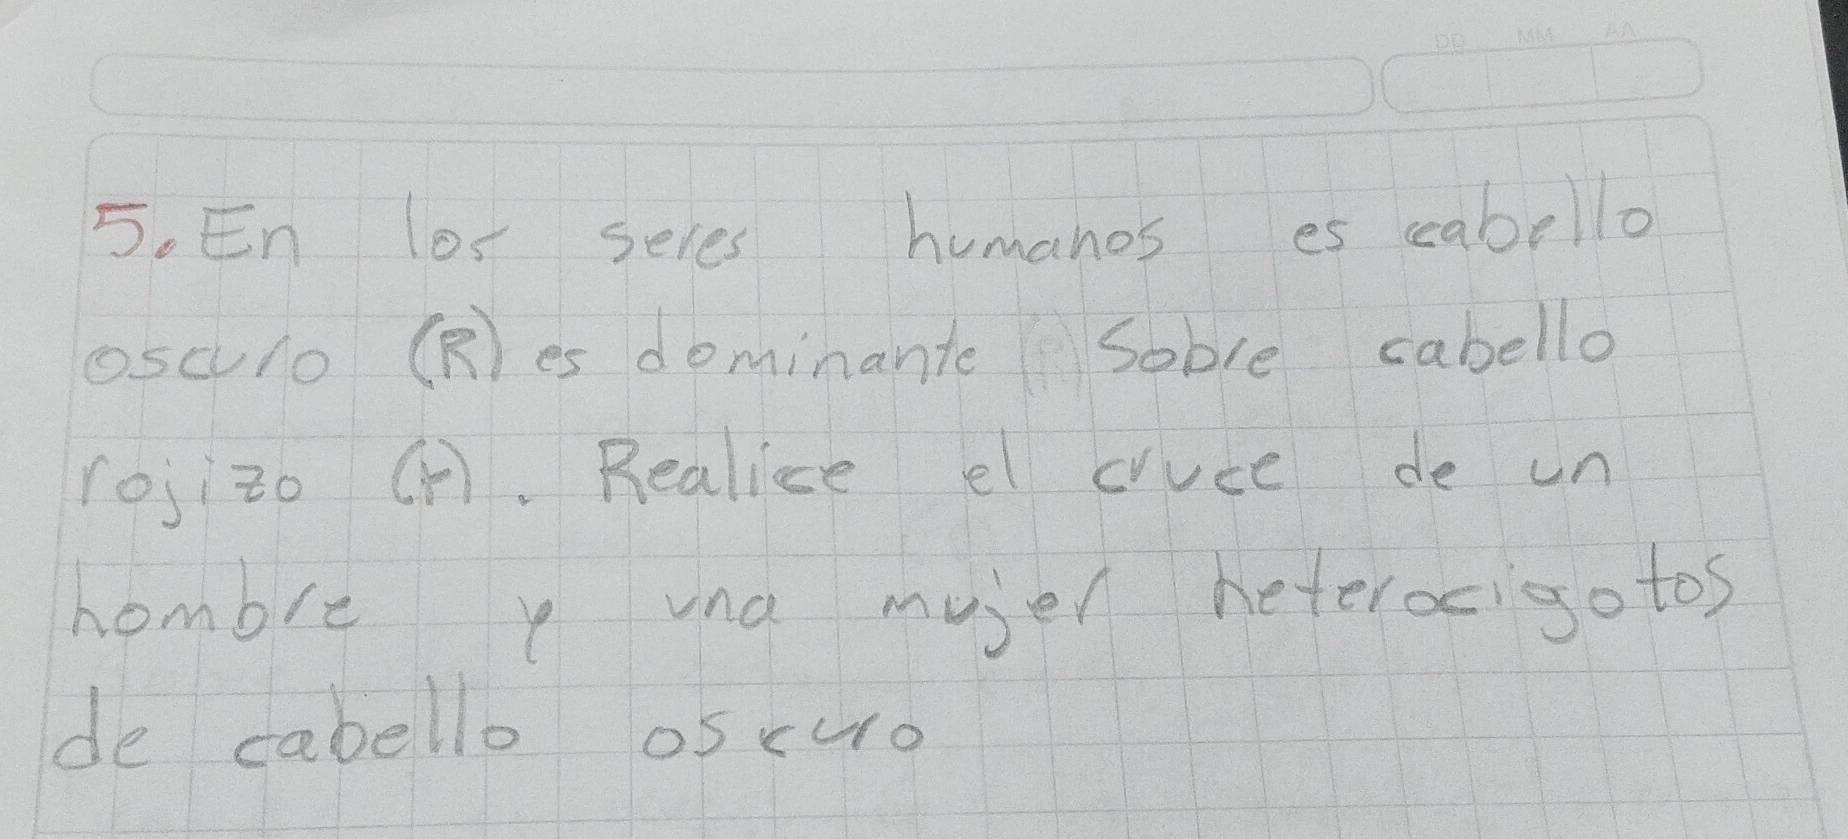 DD MM AA
5. En los seres humanos es cabello
oscuro (R) es dominante Sobre cabello
rojizo (r). Realice el cruce de un
hombre y una mujer heterocigotos
de cabello oscuro